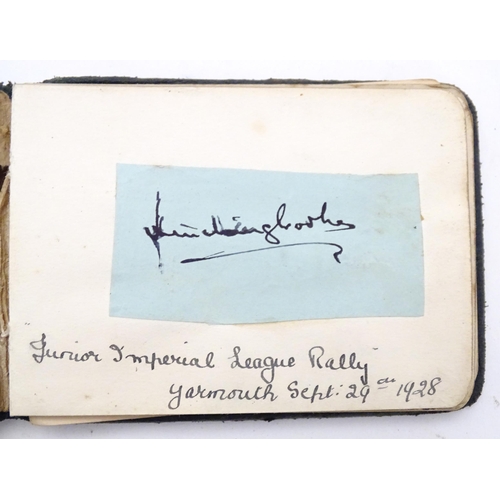 Hinchingbrooke
Junior Imperial League Rally
Yarmouth Sept: 29th 1928